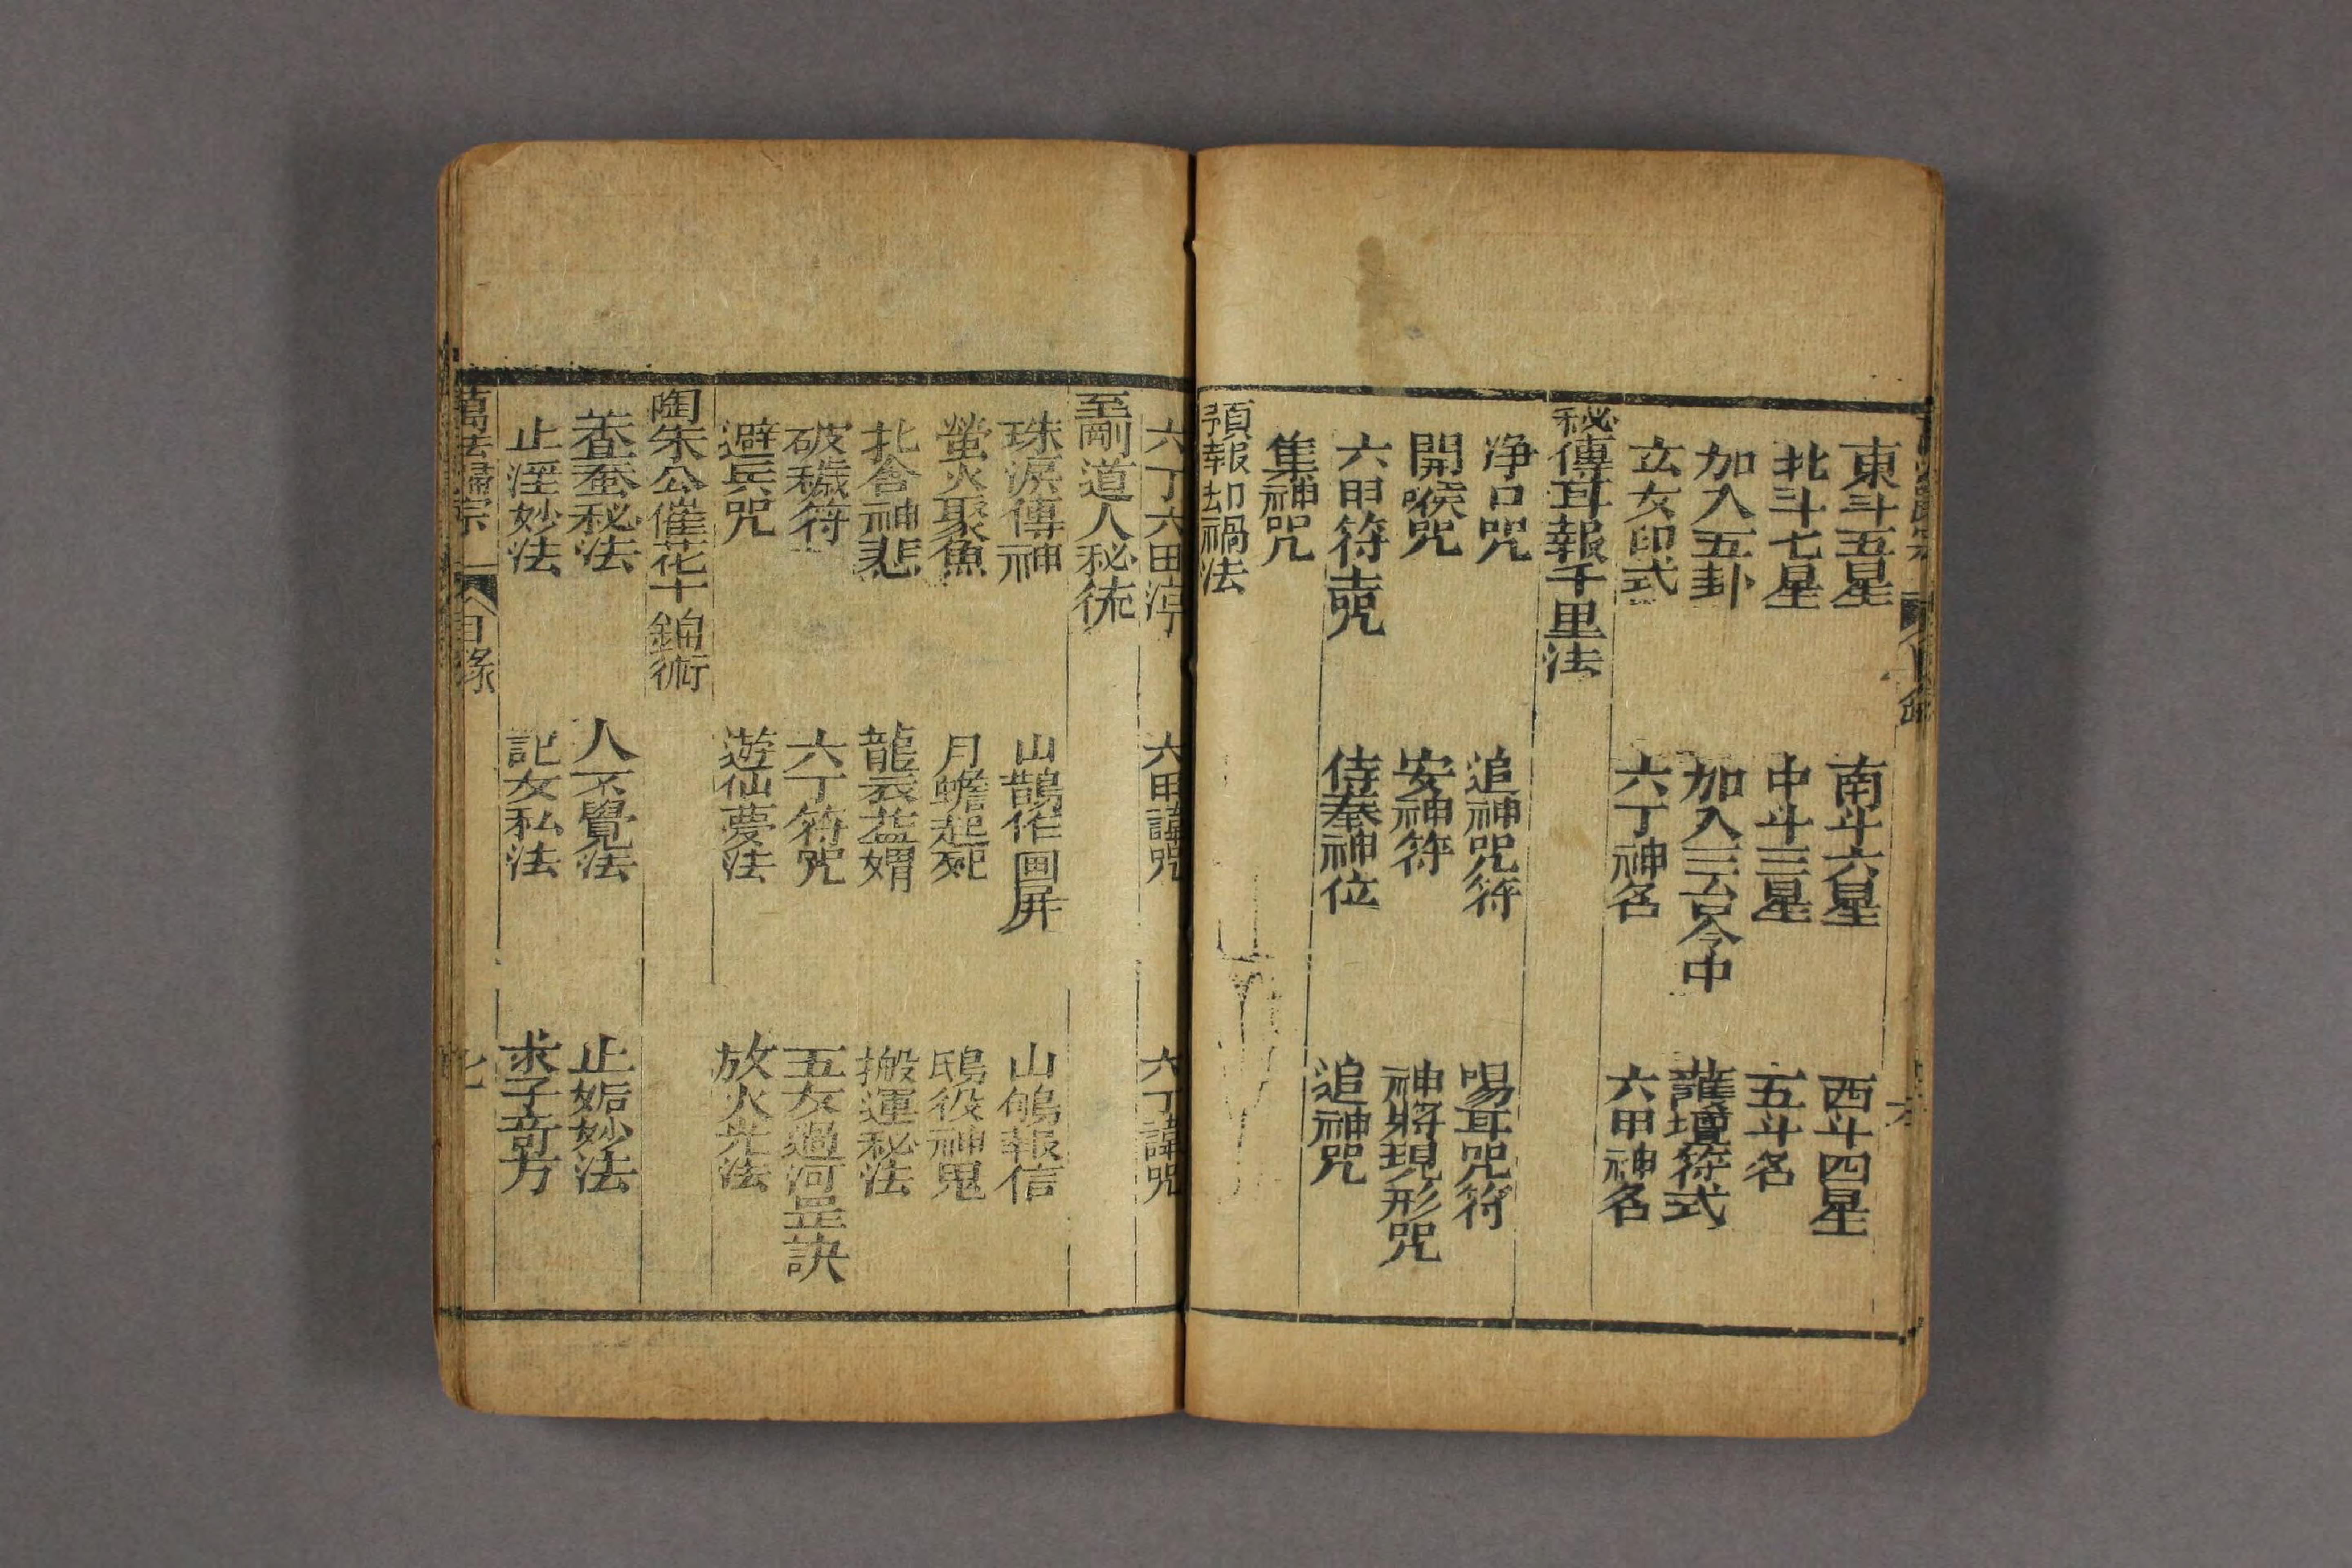 東斗五星 南斗六星 西斗四星
北斗七星 中斗三星 五斗名
加入五卦 加入三台令中 護壇符式
玄女印式 六丁神名 六甲神名
秘傳耳報千里法
净口咒 追神咒符 喝耳咒符
開喉咒 安神符 神將現形咒
六甲符咒 侍奉神位 追神咒
集神咒
預報却禍法
六丁六甲 六甲諱咒 六丁諱咒
至剛道人秘
珠淚傳神 山鵲作画屏 山鳩報信
螢火聚魚 月蟾起死 鴟役神鬼
北含神悲 龍衣 搬運秘法
破穢符 六丁符咒 五女過河罡訣
避兵咒 遊仙夢法 放火光法
陶朱公催花十錦術
蚕秘法 人不覺法 止妬妙法
止淫妙法 記女私法 求子奇方
萬法歸宗 目彔 七